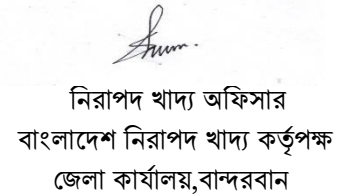 নিরাপদ খাদ্য অফিসার
বাংলাদেশ নিরাপদ খাদ্য কর্তৃপক্ষ
জেলা কার্যালয়,বান্দরবান